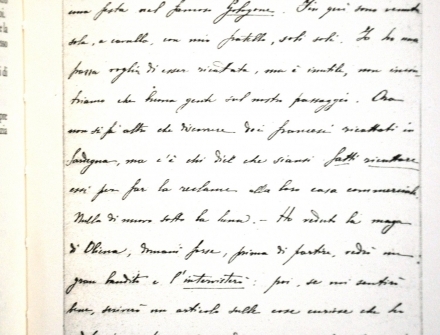 una festa nel famoso Gologone. Fin qui sono venuta
sola, a cavallo, con mio fratello, soli soli. Io ho una
pazza voglia di esser ricattata, ma è inutile, non incon-
triamo che buona gente sul nostro passaggio. Ora
non si fa altro che discorrere dei francesi ricattati in
Sardegna, ma c'è chi dice che siansi fatti ricattare
essi per far la reclame alla loro casa commerciale.
Nulla di nuovo sotto la luna. - Ho veduto la maga
di Oliena, domani forse, prima di partire, vedrò un
gran bandito e l'intervisterò: poi, se mi sentirò
bene, scriverò un articolo sulle cose curiose che ho